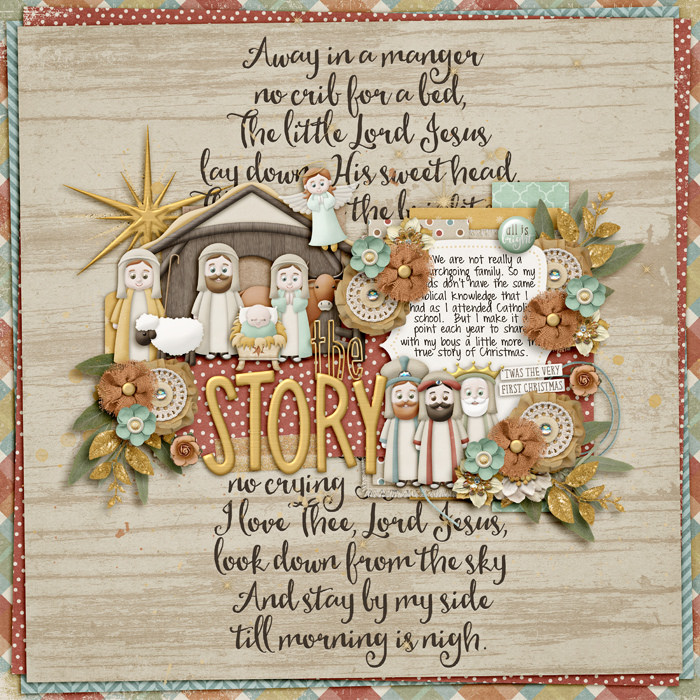 Away in a manger
no crib for a bed,
The little Lord Jesus
lay down His sweet head.
the bright
all is bright
We are not really a
family. So my
don't have the same
knowledge that I
as I attended Catholic
school. But I make it a
point each year to share
with my boys a little more
true story of Christmas.
'TWAS THE VERY
FIRST CHRISTMAS
the
STORY
no crying
I love Thee, Lord Jesus,
look down from the sky
And stay by my side
till morning is nigh.